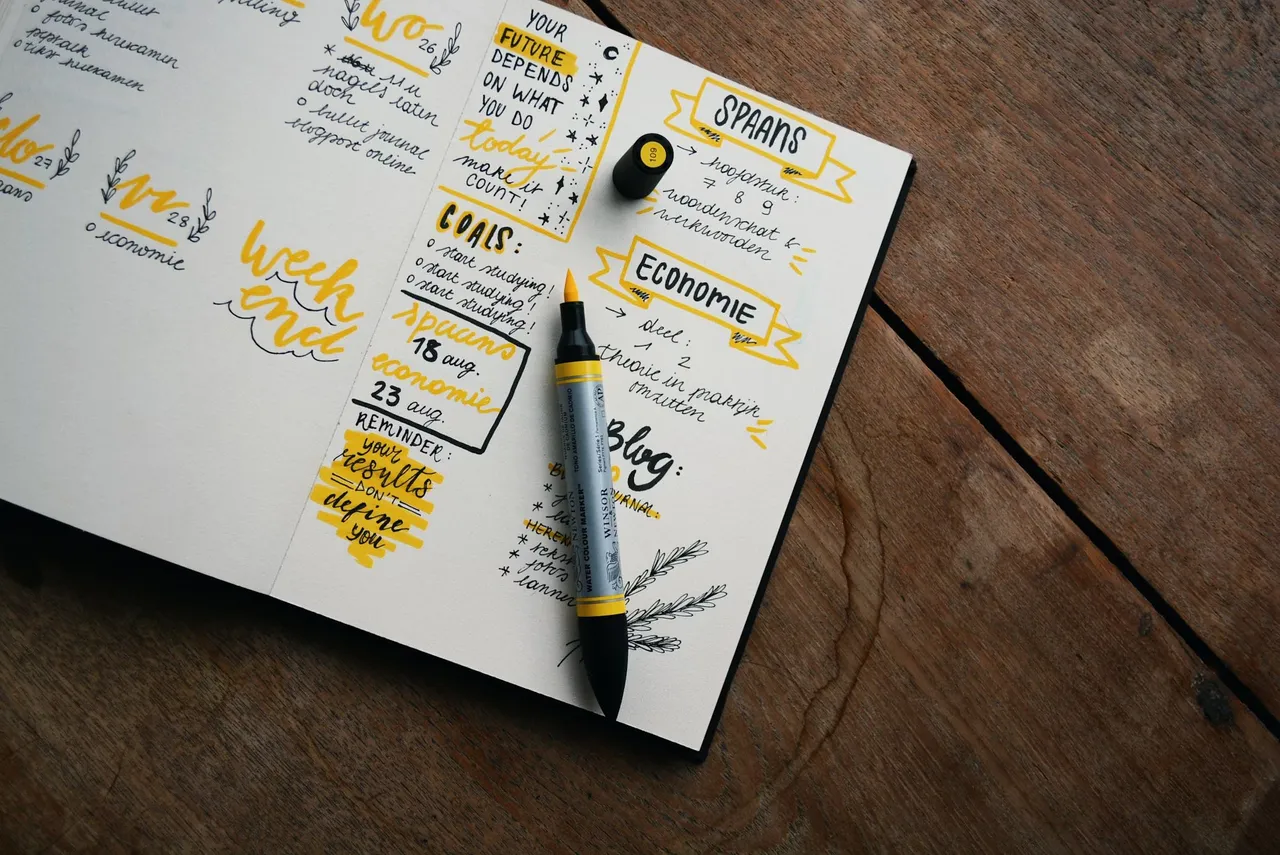 o foto's herexamen
o tekst herexamen
wo 26
* 11 u
nagels laten
doen
o bullet journal
blogpost online
do 27
vr 28
o economie
week
end
YOUR
FUTURE
DEPENDS
ON WHAT
YOU DO
today
make it
COUNT!
GOALS:
o start studying!
o start studying!
o start studying!
spaans
18 aug.
economie
23 aug.
REMINDER:
your
results
DON'T
define
you
SPAANS
→ hoofdstuk:
7 8 9
woordenschat &
werkwoorden
ECONOMIE
→ deel:
1 2
theorie in praktijk
omzetten
Blog:
URNAL:
HEREX
* tekst
* foto's
* banner
109
WINSOR
NEWTON
WATER COLOUR MARKER